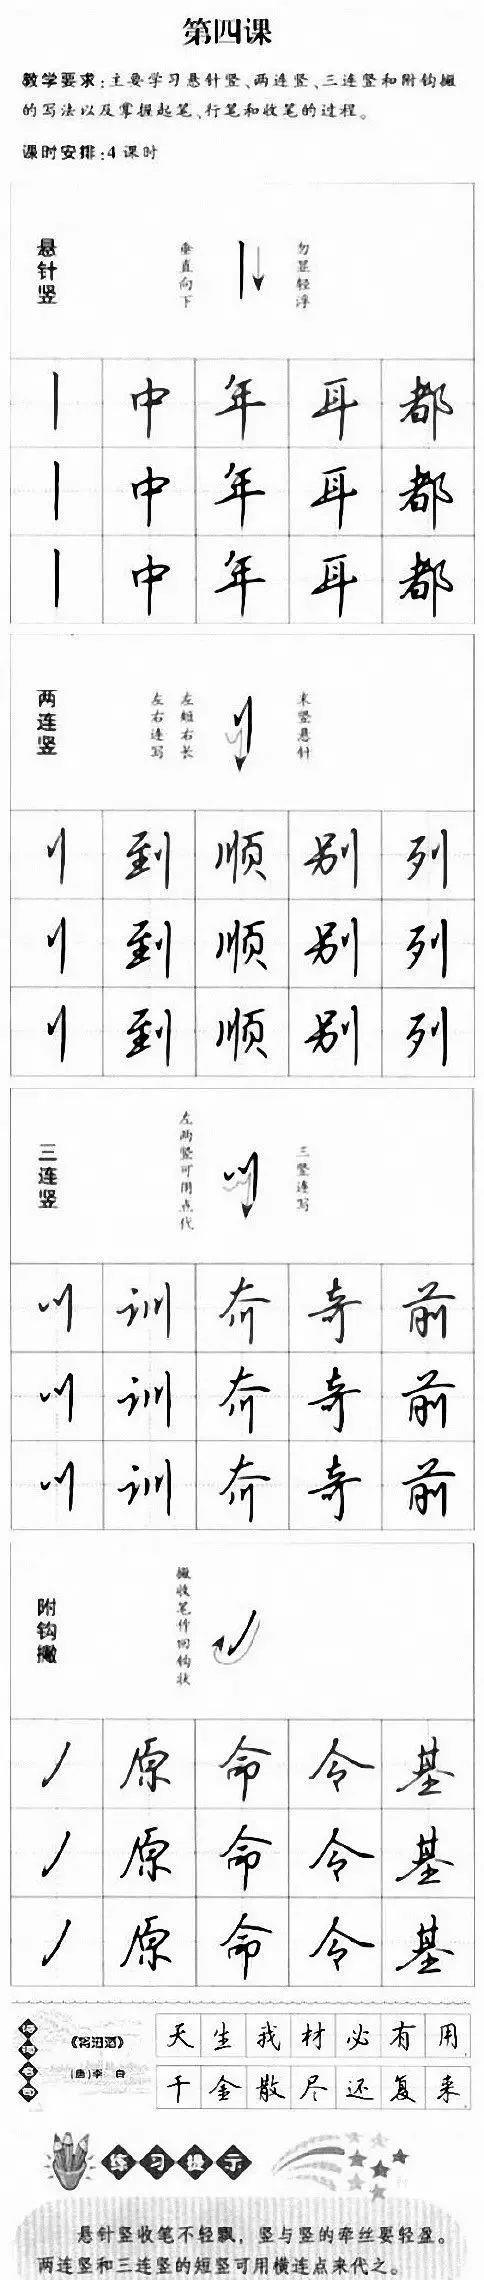 第四课
教学要求:主要学习悬针竖、两连竖、三连竖和附钩撇
的写法以及掌握起笔、行笔和收笔的过程。
课时安排:4课时
悬针竖
垂直向下
勿显轻浮
丨 中 年 耳 都
丨 中 年 耳 都
丨 中 年 耳 都
两连竖
左右连写
左短右长
末竖悬针
刂 到 顺 别 列
刂 到 顺 别 列
刂 到 顺 别 列
三连竖
左两竖可用点代
三竖连写
川 训 奇 前
川 训 奇 前
川 训 奇 前
附钩撇
撇收笔作回钩状
丿 原 命 令 基
丿 原 命 令 基
丿 原 命 令 基
《将进酒》
(唐)李白
天生我材必有用
千金散尽还复来
练习提示
悬针竖收笔不轻飘,竖与竖的牵丝要轻盈。
两连竖和三连竖的短竖可用横连点来代之。